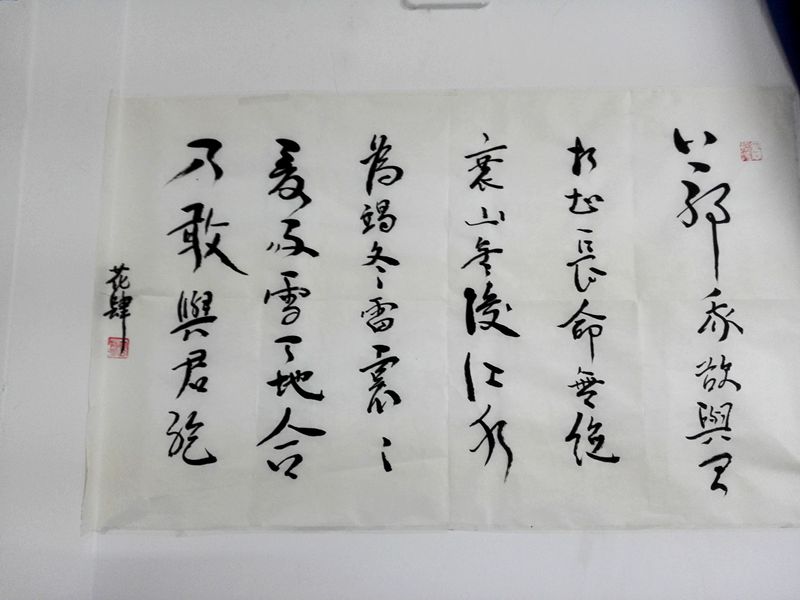 上邪我欲與君
相知長命無絕
衰山無陵江水
為竭冬雷震〻
夏雨雪天地合
乃敢與君絕
花肆